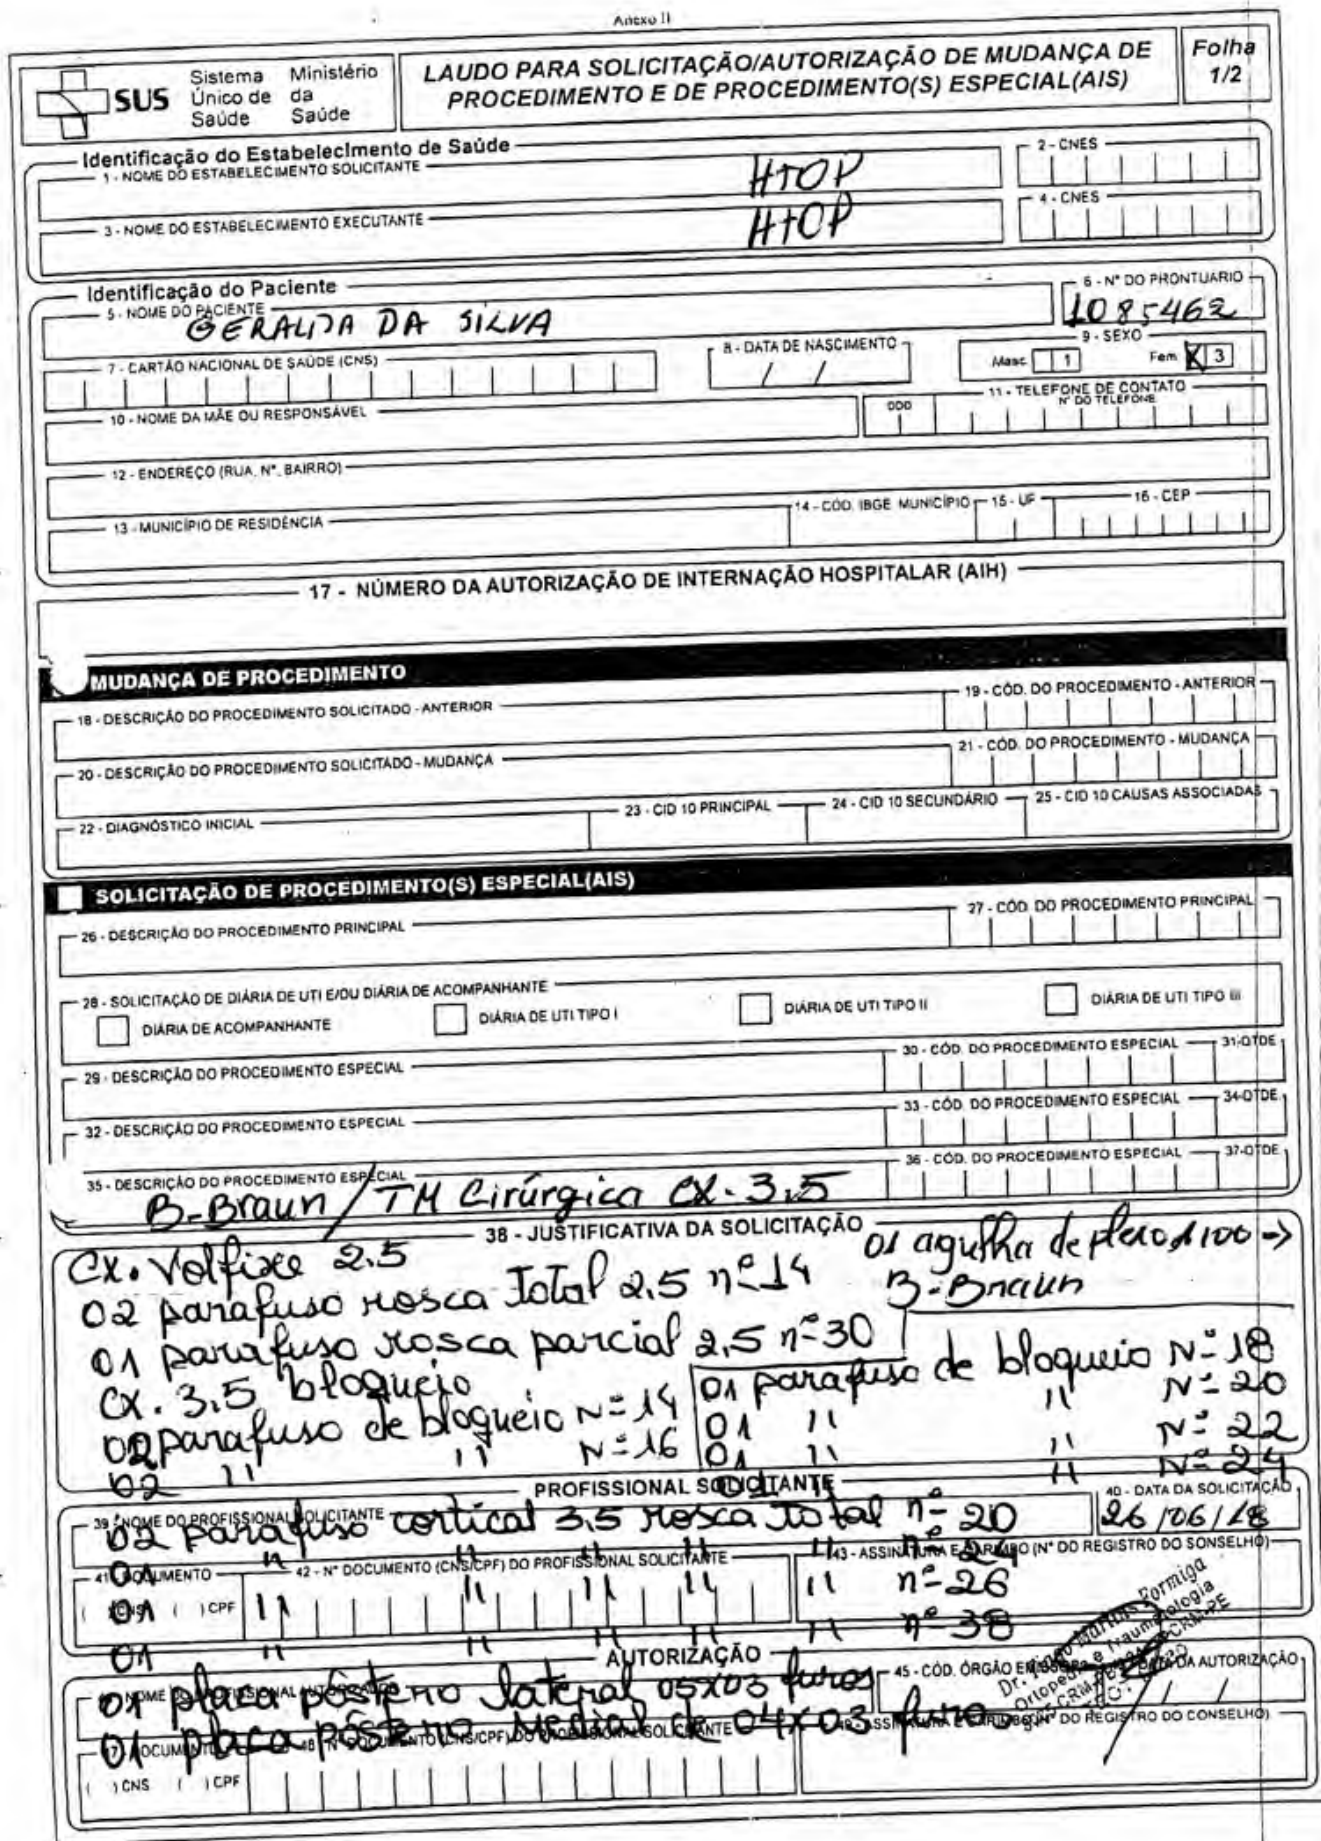 Anexo II
SUS Sistema Único de Saúde Ministério da Saúde
LAUDO PARA SOLICITAÇÃO/AUTORIZAÇÃO DE MUDANÇA DE
PROCEDIMENTO E DE PROCEDIMENTO(S) ESPECIAL(AIS)
Folha
1/2
Identificação do Estabelecimento de Saúde
1 - NOME DO ESTABELECIMENTO SOLICITANTE
HTOP
2 - CNES
3 - NOME DO ESTABELECIMENTO EXECUTANTE
HTOP
4 - CNES
Identificação do Paciente
5 - NOME DO PACIENTE
GERALDA DA SILVA
6 - N° DO PRONTUÁRIO
1085462
7 - CARTÃO NACIONAL DE SAÚDE (CNS)
8 - DATA DE NASCIMENTO
/ /
9 - SEXO
Masc 1 Fem X 3
10 - NOME DA MÃE OU RESPONSÁVEL
11 - TELEFONE DE CONTATO
DDD N° DO TELEFONE
12 - ENDEREÇO (RUA, N°, BAIRRO)
13 - MUNICÍPIO DE RESIDÊNCIA
14 - CÓD. IBGE MUNICÍPIO
15 - UF
16 - CEP
17 - NÚMERO DA AUTORIZAÇÃO DE INTERNAÇÃO HOSPITALAR (AIH)
MUDANÇA DE PROCEDIMENTO
18 - DESCRIÇÃO DO PROCEDIMENTO SOLICITADO - ANTERIOR
19 - CÓD. DO PROCEDIMENTO - ANTERIOR
20 - DESCRIÇÃO DO PROCEDIMENTO SOLICITADO - MUDANÇA
21 - CÓD. DO PROCEDIMENTO - MUDANÇA
22 - DIAGNÓSTICO INICIAL
23 - CID 10 PRINCIPAL
24 - CID 10 SECUNDÁRIO
25 - CID 10 CAUSAS ASSOCIADAS
SOLICITAÇÃO DE PROCEDIMENTO(S) ESPECIAL(AIS)
26 - DESCRIÇÃO DO PROCEDIMENTO PRINCIPAL
27 - CÓD. DO PROCEDIMENTO PRINCIPAL
28 - SOLICITAÇÃO DE DIÁRIA DE UTI E/OU DIÁRIA DE ACOMPANHANTE
DIÁRIA DE ACOMPANHANTE
DIÁRIA DE UTI TIPO I
DIÁRIA DE UTI TIPO II
DIÁRIA DE UTI TIPO III
29 - DESCRIÇÃO DO PROCEDIMENTO ESPECIAL
30 - CÓD. DO PROCEDIMENTO ESPECIAL
31-QTDE
32 - DESCRIÇÃO DO PROCEDIMENTO ESPECIAL
33 - CÓD. DO PROCEDIMENTO ESPECIAL
34-QTDE
35 - DESCRIÇÃO DO PROCEDIMENTO ESPECIAL
36 - CÓD. DO PROCEDIMENTO ESPECIAL
37-QTDE
B-Braun / TM Cirúrgica CX. 3.5
38 - JUSTIFICATIVA DA SOLICITAÇÃO
01 agulha de 100 ->
B-Braun
CX. Volfixe 2.5
02 parafuso rosca Total 2.5 nº 14
01 parafuso rosca parcial 2.5 nº 30
CX. 3.5 bloqueio
02 parafuso de bloqueio Nº 14
02 " " Nº 16
01 parafuso de bloqueio Nº 18
01 " " Nº 20
01 " " Nº 22
01 " " Nº 24
PROFISSIONAL SOLICITANTE
39 - NOME DO PROFISSIONAL SOLICITANTE
40 - DATA DA SOLICITAÇÃO
26/06/18
02 parafuso cortical 3.5 rosca Total nº 20
01 " " " " " nº 24
41 - DOCUMENTO
( ) CNS ( ) CPF
42 - N° DOCUMENTO (CNS/CPF) DO PROFISSIONAL SOLICITANTE
43 - ASSINATURA E CARIMBO (N° DO REGISTRO DO SONSELHO)
01 " " " " " nº 26
01 " " " " " nº 38
Martins Formiga
Ortopedia e Traumatologia
CRM-PE
AUTORIZAÇÃO
45 - CÓD. ÓRGÃO
DATA DA AUTORIZAÇÃO
/ /
01 placa póstero lateral 05x03 furos
01 placa póstero Medial de 04x03 furos
47 - DOCUMENTO
( ) CNS ( ) CPF
48 - N° DOCUMENTO (CNS/CPF) DO PROFISSIONAL SOLICITANTE
49 - ASSINATURA E CARIMBO (N° DO REGISTRO DO CONSELHO)